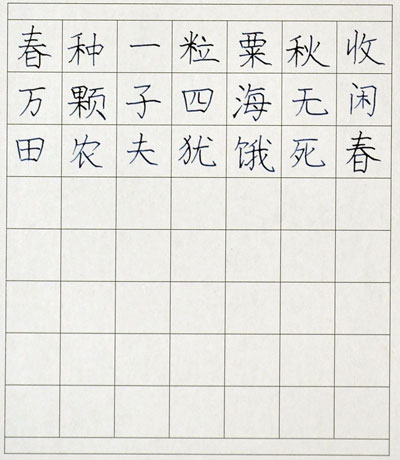 春种一粒粟秋收
万颗子四海无闲
田农夫犹饿死春